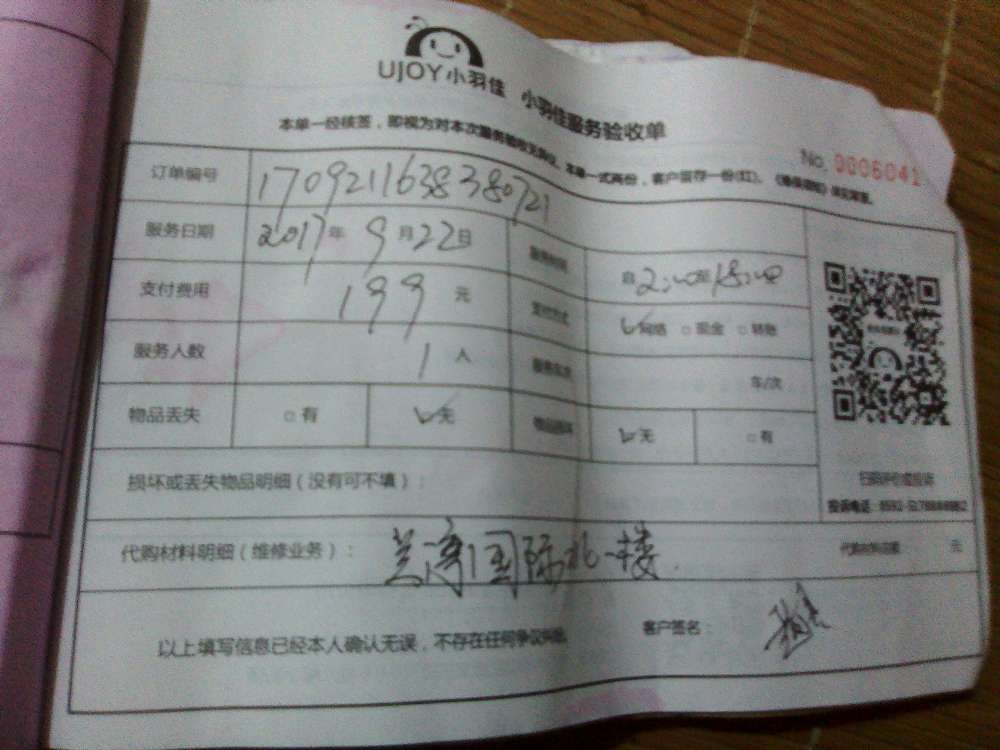 UJOY小羽佳 小羽佳服务验收单
本单一经核签，即视为对本次服务验收无异议。本单一式两份，客户留存一份(红)。
No. 0006041
订单编号 1709211638380721
服务日期 2017年9月22日 服务时间
支付费用 199元 支付方式 网络 □现金 □转账
服务人数 1人 服务车次 车/次
物品丢失 □有 无 物品损坏 无 □有
损坏或丢失物品明细（没有可不填）：
扫码评价或投诉
代购材料明细（维修业务）： 国际 楼
代购材料总额 元
以上填写信息已经本人确认无误，不存在任何争议
客户签名：